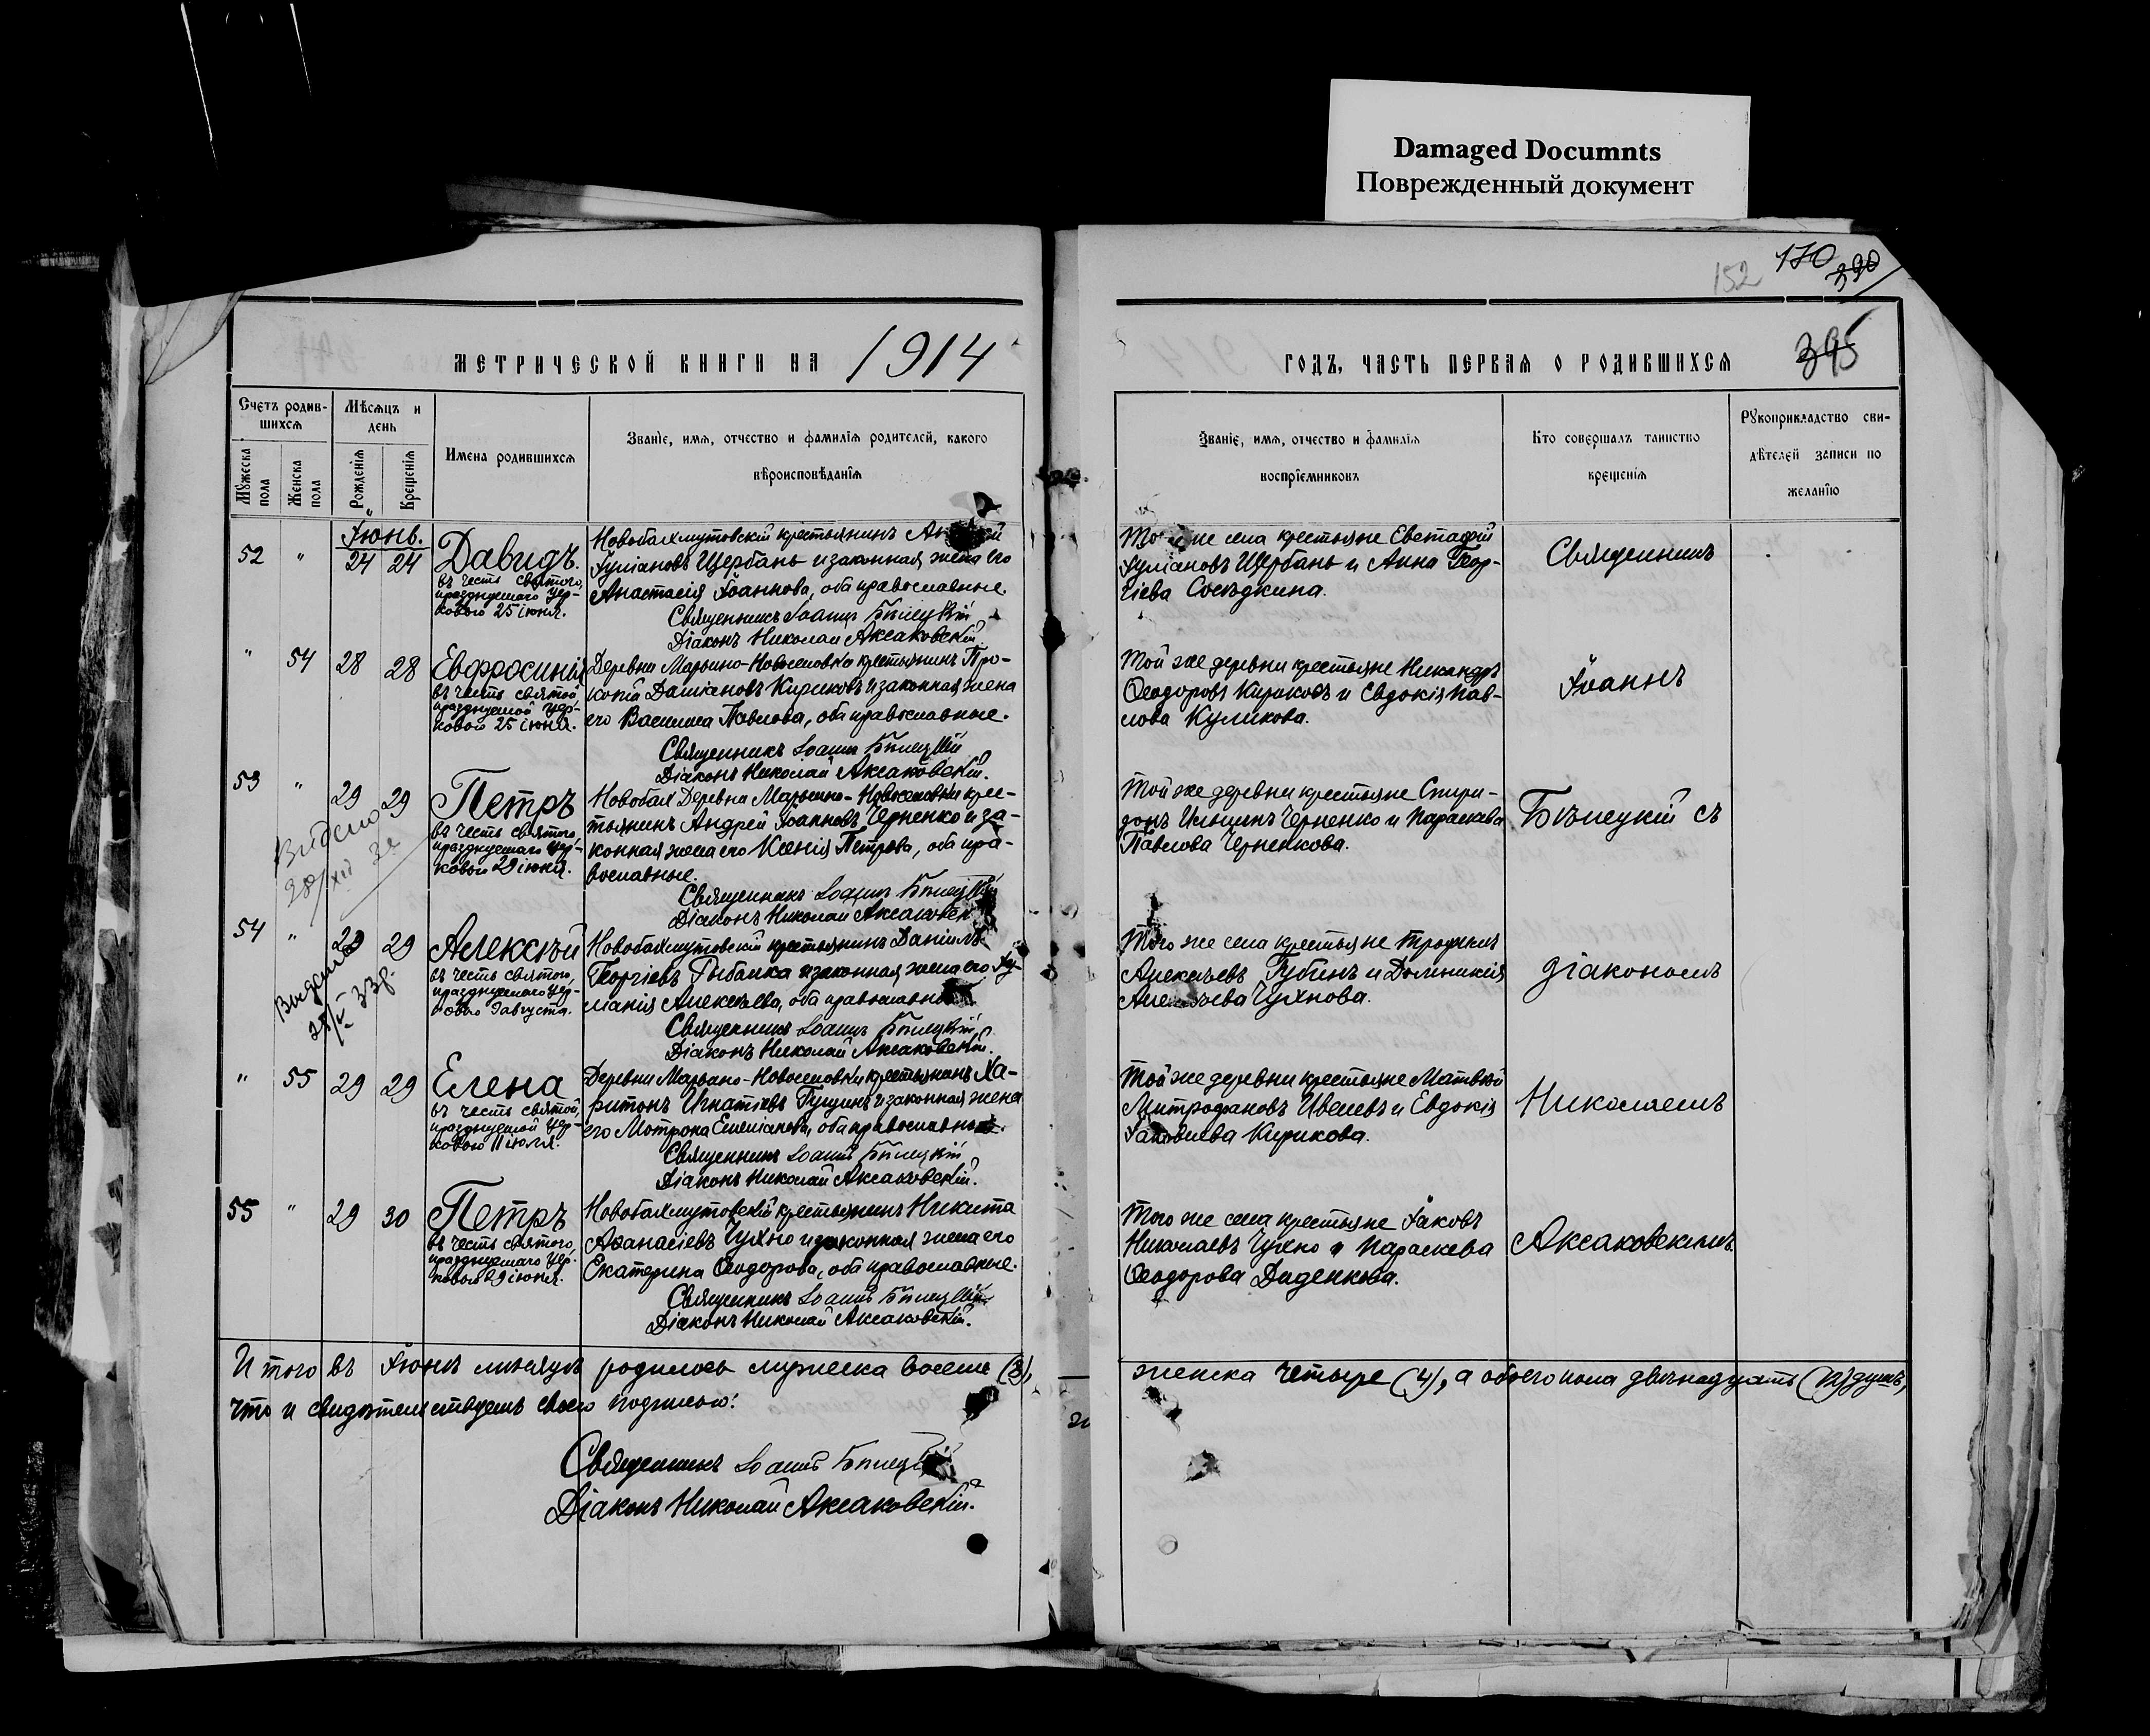 Damaged Documnts
Поврежденный документ
152
170
390
МЕТРИЧЕСКОЙ КНИГИ НА 1914
ГОДЪ, ЧАСТЬ ПЕРВАЯ О РОДИВШИХСЯ
395
Счетъ родив-
шихся
Мужеска пола
Женска пола
Мѣсяцъ и
день
Рожденія
Крещенія
Имена родившихся
Званіе, имя, отчество и фамилія родителей, какого
вѣроисповѣданія
Званіе, имя, отчество и фамилія
воспріемниковъ
Кто совершалъ таинство
крещенія
Рукоприкладство сви-
дѣтелей записи по
желанію
Іюнь.
52 " 24 24
Давидъ.
въ честь святого,
празднуемаго цер-
ковью 25 іюня.
Новобахмутовскій крестьянинъ
Іуліановъ Щербань и законная жена его
Анастасія Іоаннова, оба православные.
Священникъ Іоаннъ Бѣлецкій
Діаконъ Николай Аксаковскій.
Того же села крестьяне Евстафій
Іуліановъ Щербань и Анна Геор-
гіева Сосѣдкина.
" 54 28 28
Евфросинія
въ честь святой
празднуемой цер-
ковью 25 іюня.
Деревни Марьино-Новоселовка крестьянинъ Про-
копій Даміановъ Кириковъ и законная жена
его Василиса Павлова, оба православные.
Священникъ Іоаннъ Бѣлецкій
Діаконъ Николай Аксаковскій.
Той же деревни крестьяне Никандръ
Ѳеодоровъ Кириковъ и Евдокія Пав-
лова Куликова.
53 " 29 29
Видено
28/XII 3г
Петръ
въ честь святого,
празднуемаго цер-
ковью 29 іюня.
Новобах Деревни Марьино-Новоселовки крес-
тьянинъ Андрей Іоанновъ Черненко и за-
конная жена его Ксенія Петрова, оба пра-
вославные.
Священникъ Іоаннъ Бѣлецкій
Діаконъ Николай Аксаковск
Той же деревни крестьяне Спири-
донъ Ильинъ Черненко и Параскева
Павлова Черненкова.
54 " 29 29
33г.
Алексѣй
въ честь святого,
празднуемаго цер-
ковью 9 августа.
Новобахмутовскій крестьянинъ Даніилъ
Георгіевъ Рыбалка и законная жена его Іу-
ліанія Алексѣева, оба православные
Священникъ Іоаннъ Бѣлецкій
Діаконъ Николай Аксаковскій.
Того же села крестьяне Трофимъ
Алексѣевъ Губинъ и Домникія
Алексѣева Чухнова.
" 55 29 29
Елена
въ честь святой,
празднуемой цер-
ковью 11 іюля.
Деревни Марьино-Новоселовки крестьянинъ Ха-
ритонъ Игнатіевъ Гущинъ и законная жена
его Мотрона Емеліанова, оба православные.
Священникъ Іоаннъ Бѣлецкій
Діаконъ Николай Аксаковскій.
Той же деревни крестьяне Матвѣй
Митрофановъ Ивлевъ и Евдокія
Іаковлева Кирикова.
55 " 29 30
Петръ
въ честь святого,
празднуемаго цер-
ковью 29 іюня.
Новобахмутовскій крестьянинъ Никита
Аѳанасіевъ Чухно и законная жена его
Екатерина Ѳеодорова, оба православные.
Священникъ Іоаннъ Бѣлецкій
Діаконъ Николай Аксаковскій.
Того же села крестьяне Іаковъ
Николаевъ Чухно и Параскева
Ѳеодорова Диденкова.
Священникъ
Іоаннъ
Бѣлецкій съ
діакономъ
Николаемъ
Аксаковскимъ.
Итого въ Іюнѣ мѣсяцѣ родилось мужеска восемь (8),
женска четыре (4), а обоего пола двѣнадцать (12) душъ,
что и свидѣтельствуемъ своею подписью:
Священникъ Іоаннъ Бѣлецкій
Діаконъ Николай Аксаковскій.